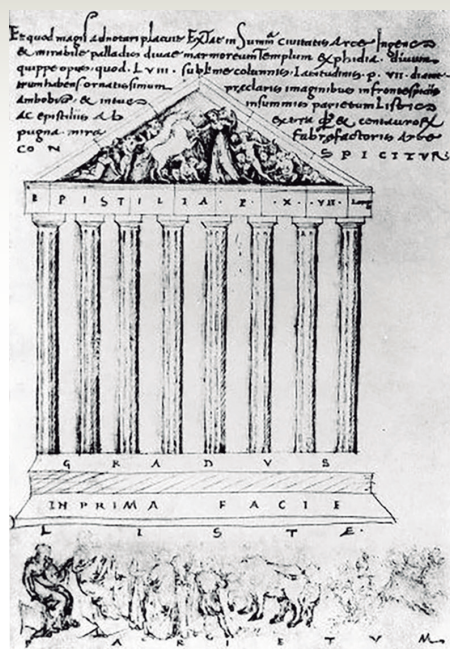 Et quod magis adnotari placuit Extat in Summa Civitatis Arce Ingens
& mirabile palladis divae marmoreum Templum ex phidia divum
quippe opus. quod. LVIII. sublime columnis. Latitudinis. p. VII. diame
trum habens ornatissimum praeclaris imaginibus in frontespiciis
Ambobus. & in summis parietum Listis
AC epistiliis Ab extra & centaurorum
pugna. mira Fabrefactoris Arte
CON SPICITVR
EPISTILIA . P . X . VII .
GRADVS
IN PRIMA FACIE
LISTE.
PARIETVM